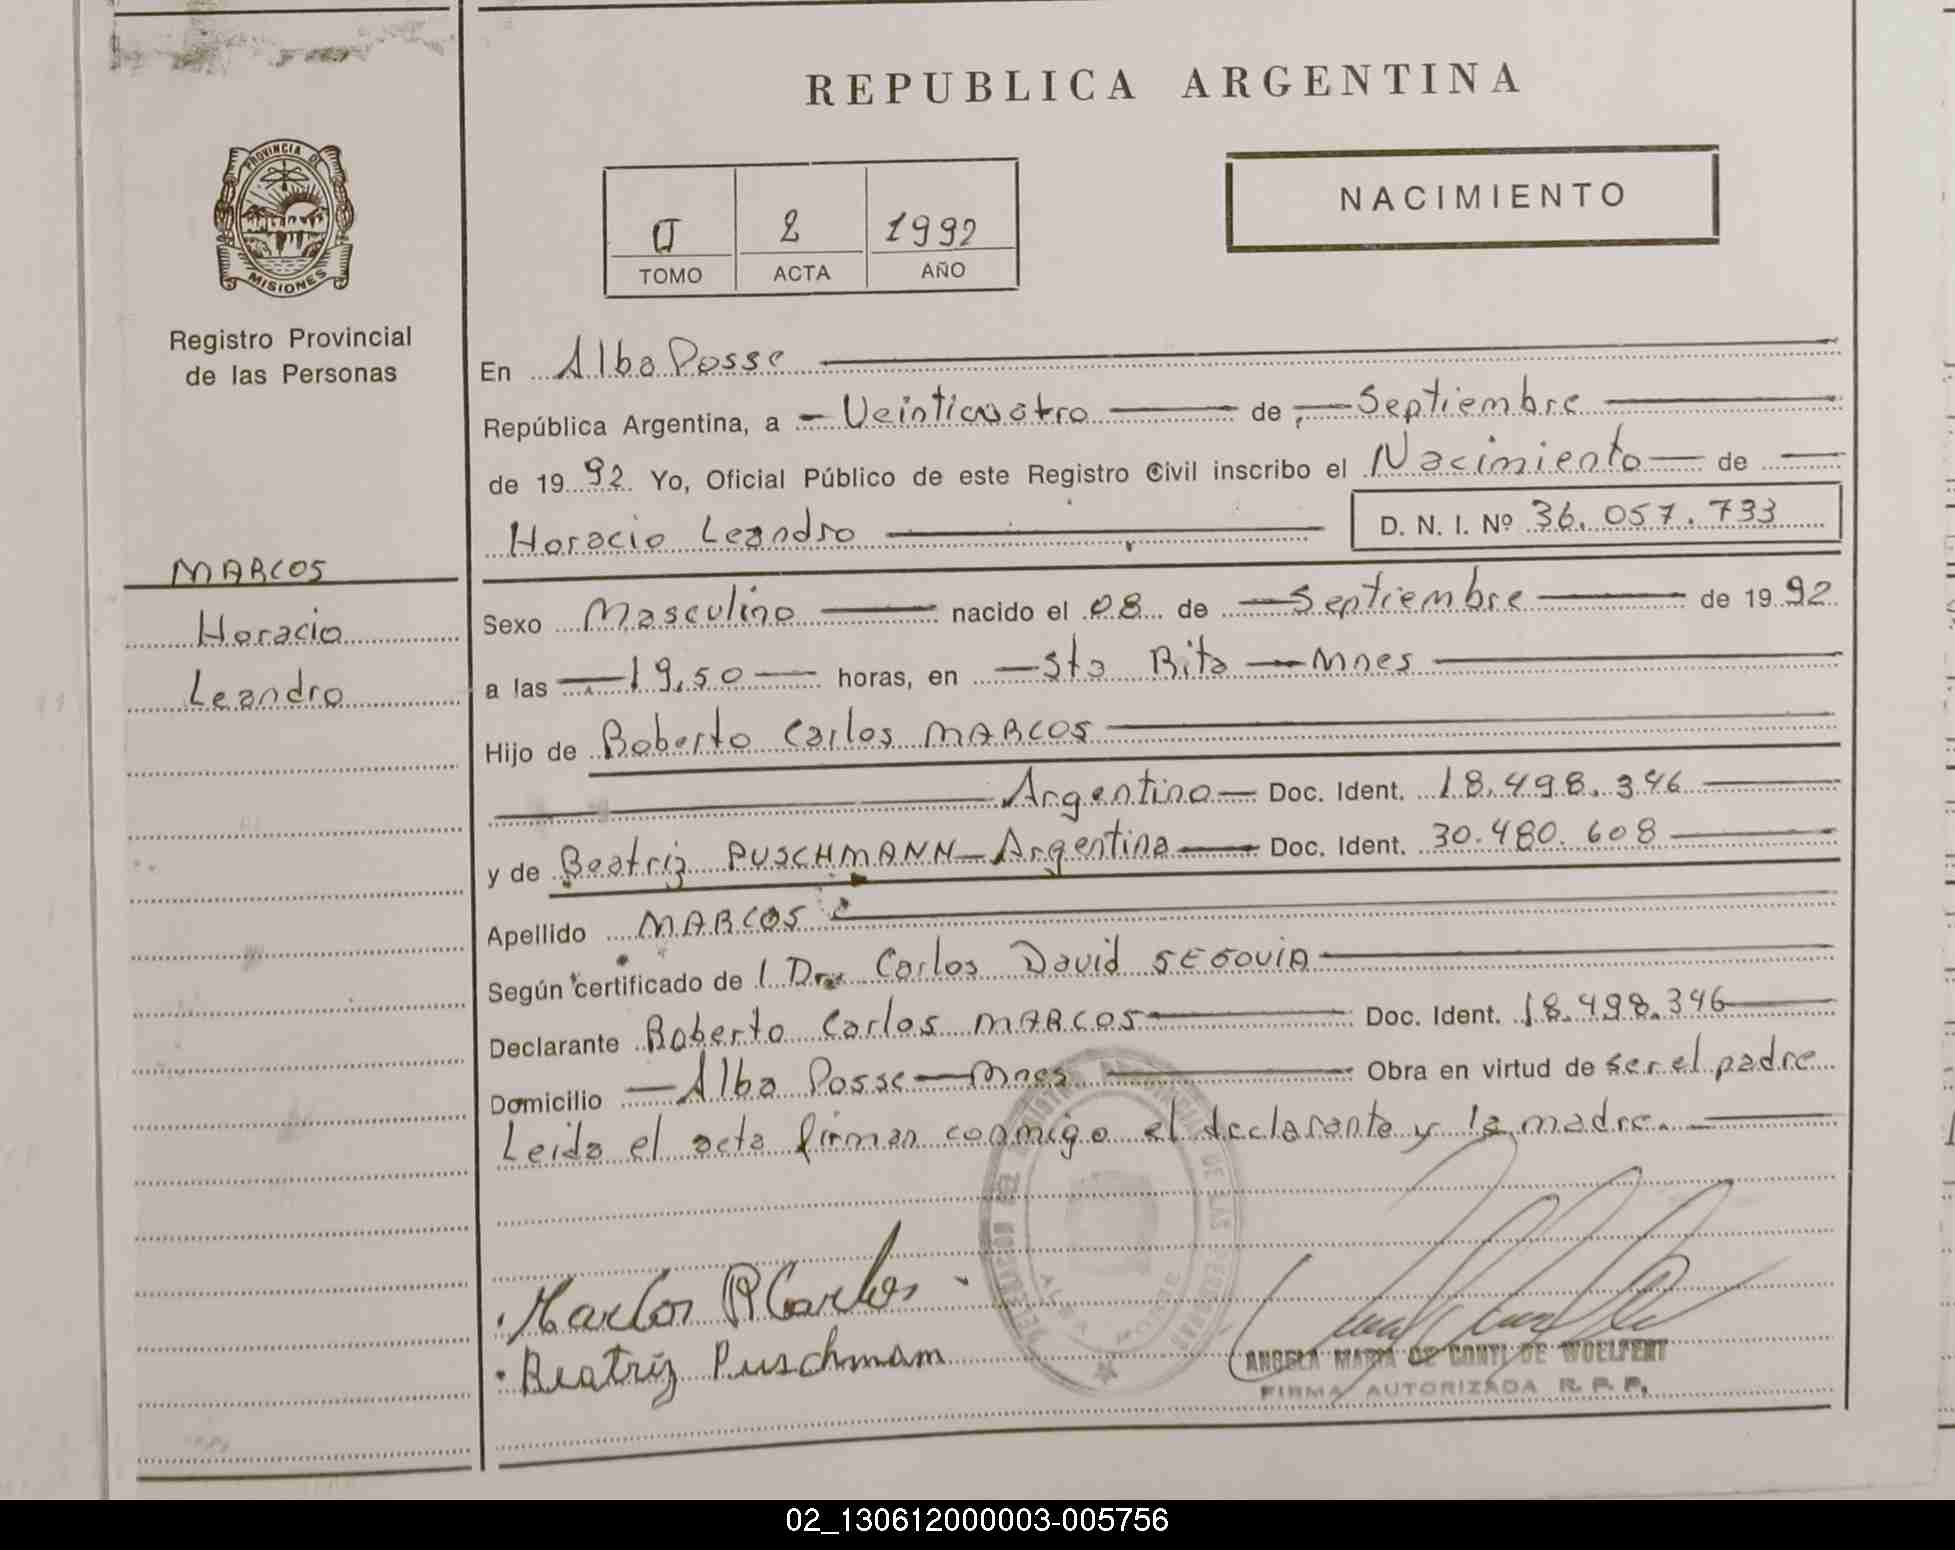 REPUBLICA ARGENTINA
PROVINCIA DE
MISIONES
Registro Provincial
de las Personas
2 1992
TOMO ACTA AÑO
NACIMIENTO
En Alba Posse
República Argentina, a Veinticuatro de Septiembre
de 1992 Yo, Oficial Público de este Registro Civil inscribo el Nacimiento de
Horacio Leandro D. N. I. Nº 36.057.733
MARCOS
Horacio
Leandro
Sexo Masculino nacido el 08 de Septiembre de 1992
a las 19,50 horas, en Sta Rita Mnes
Hijo de Roberto Carlos MARCOS
Argentino Doc. Ident. 18.498.346
y de Beatriz PUSCHMANN Argentina Doc. Ident. 30.480.608
Apellido MARCOS
Según certificado de l Dr. Carlos David SEGOVIA
Declarante Roberto Carlos MARCOS Doc. Ident. 18.498.346
Domicilio Alba Posse Mnes Obra en virtud de ser el padre
Leida el acta firman conmigo el declarante y la madre.
Marcos R Carlos
Beatriz Puschmam
ANGELA MARIA DE CONTI DE WOELFERT
FIRMA AUTORIZADA R. P. P.
02_130612000003-005756